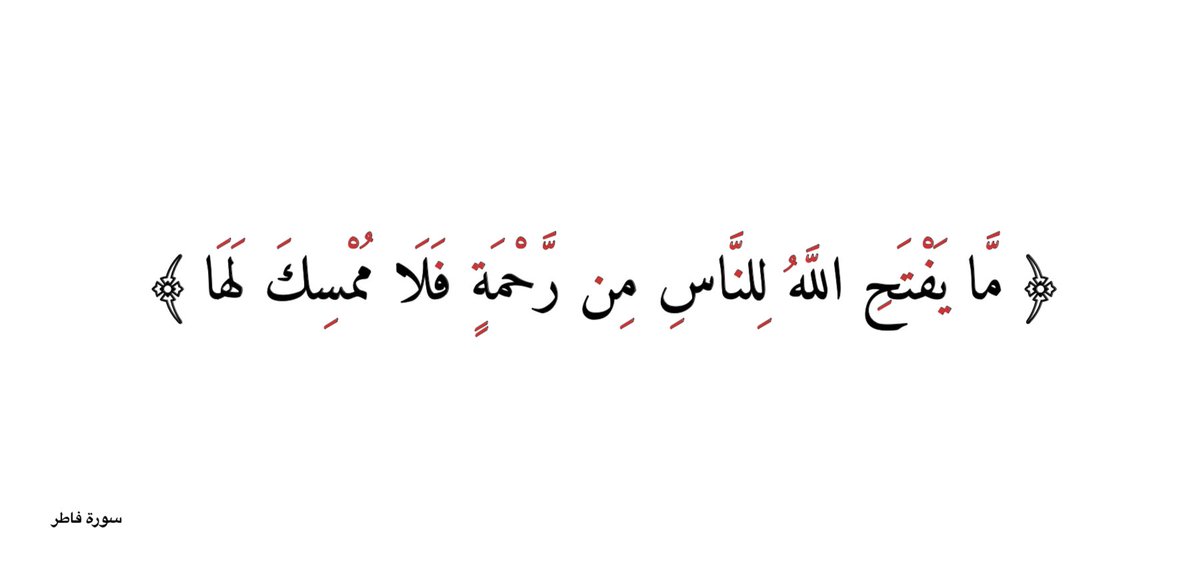 ﴿ مَّا يَفْتَحِ اللَّهُ لِلنَّاسِ مِن رَّحْمَةٍ فَلَا مُمْسِكَ لَهَا ﴾
سورة فاطر